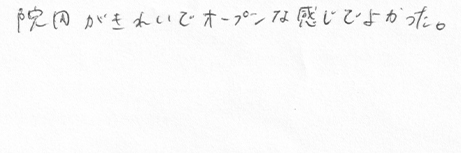 院内がきれいでオープンな感じでよかった。